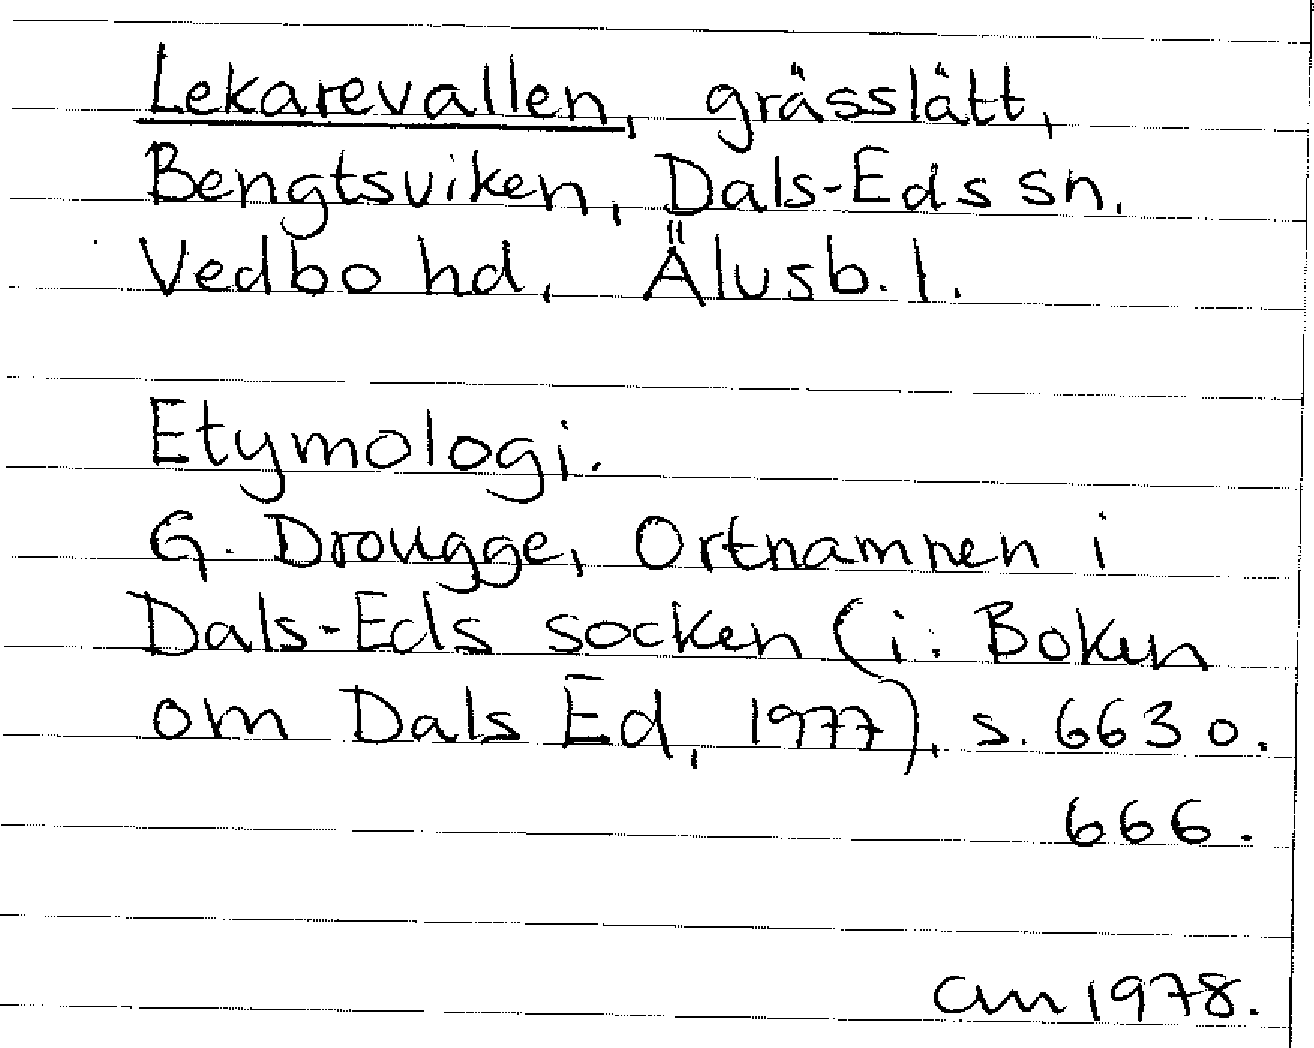 Lekarevallen, grässlätt,
Bengtsviken, Dals-Eds sn.
Vedbo hd, Älvsb. l.
Etymologi.
G. Drougge, Ortnamnen i
Dals-Eds socken (i: Boken
om Dals Ed, 1977), s. 663 o.
666.
am 1978.